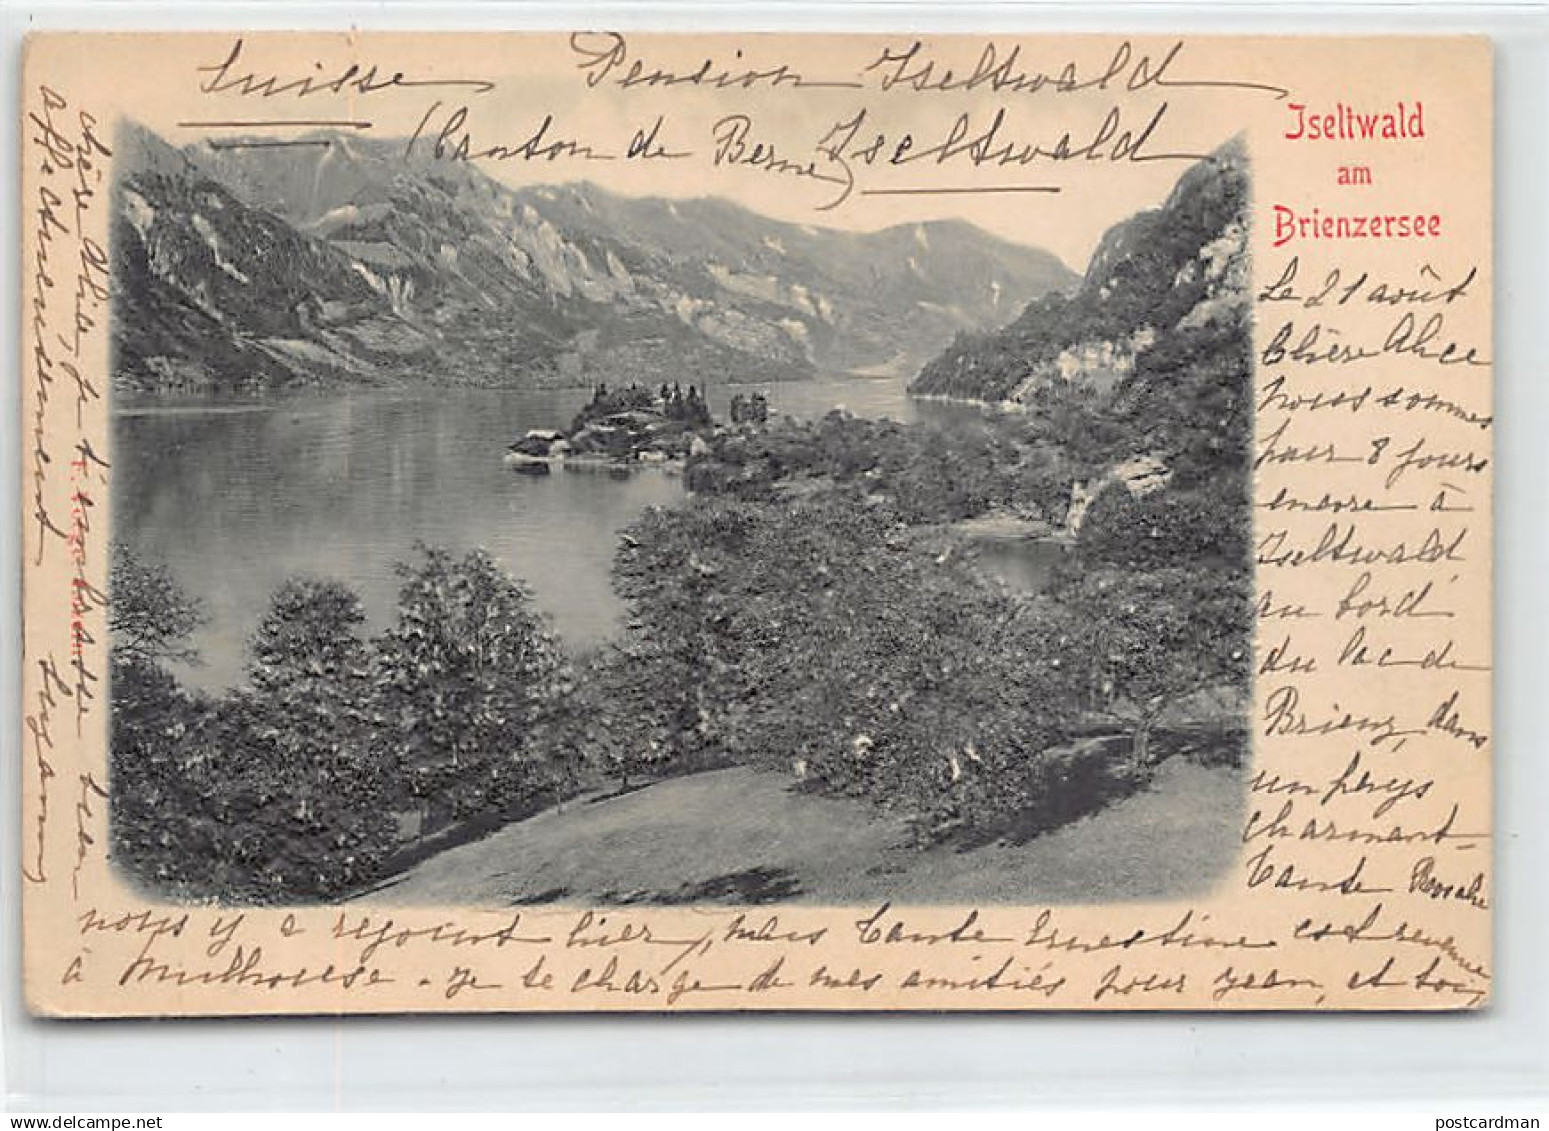 Suisse Pension Iseltwald
(Canton de Berne) Iseltwald
Iseltwald
am
Brienzersee
Le 21 août
Chère Alice
nous sommes
pour 8 jours
encore à
Iseltwald
au bord
du lac de
Brienz, dans
un pays
charmant
Tante Rosalie
nous y a rejoint hier, mais Tante Ernestine est revenue
à Mulhouse. je te charge de mes amitiés pour Jean, et toi,
chère Alice, je t'embrasse bien
affectueusement Suzanne
postcardman